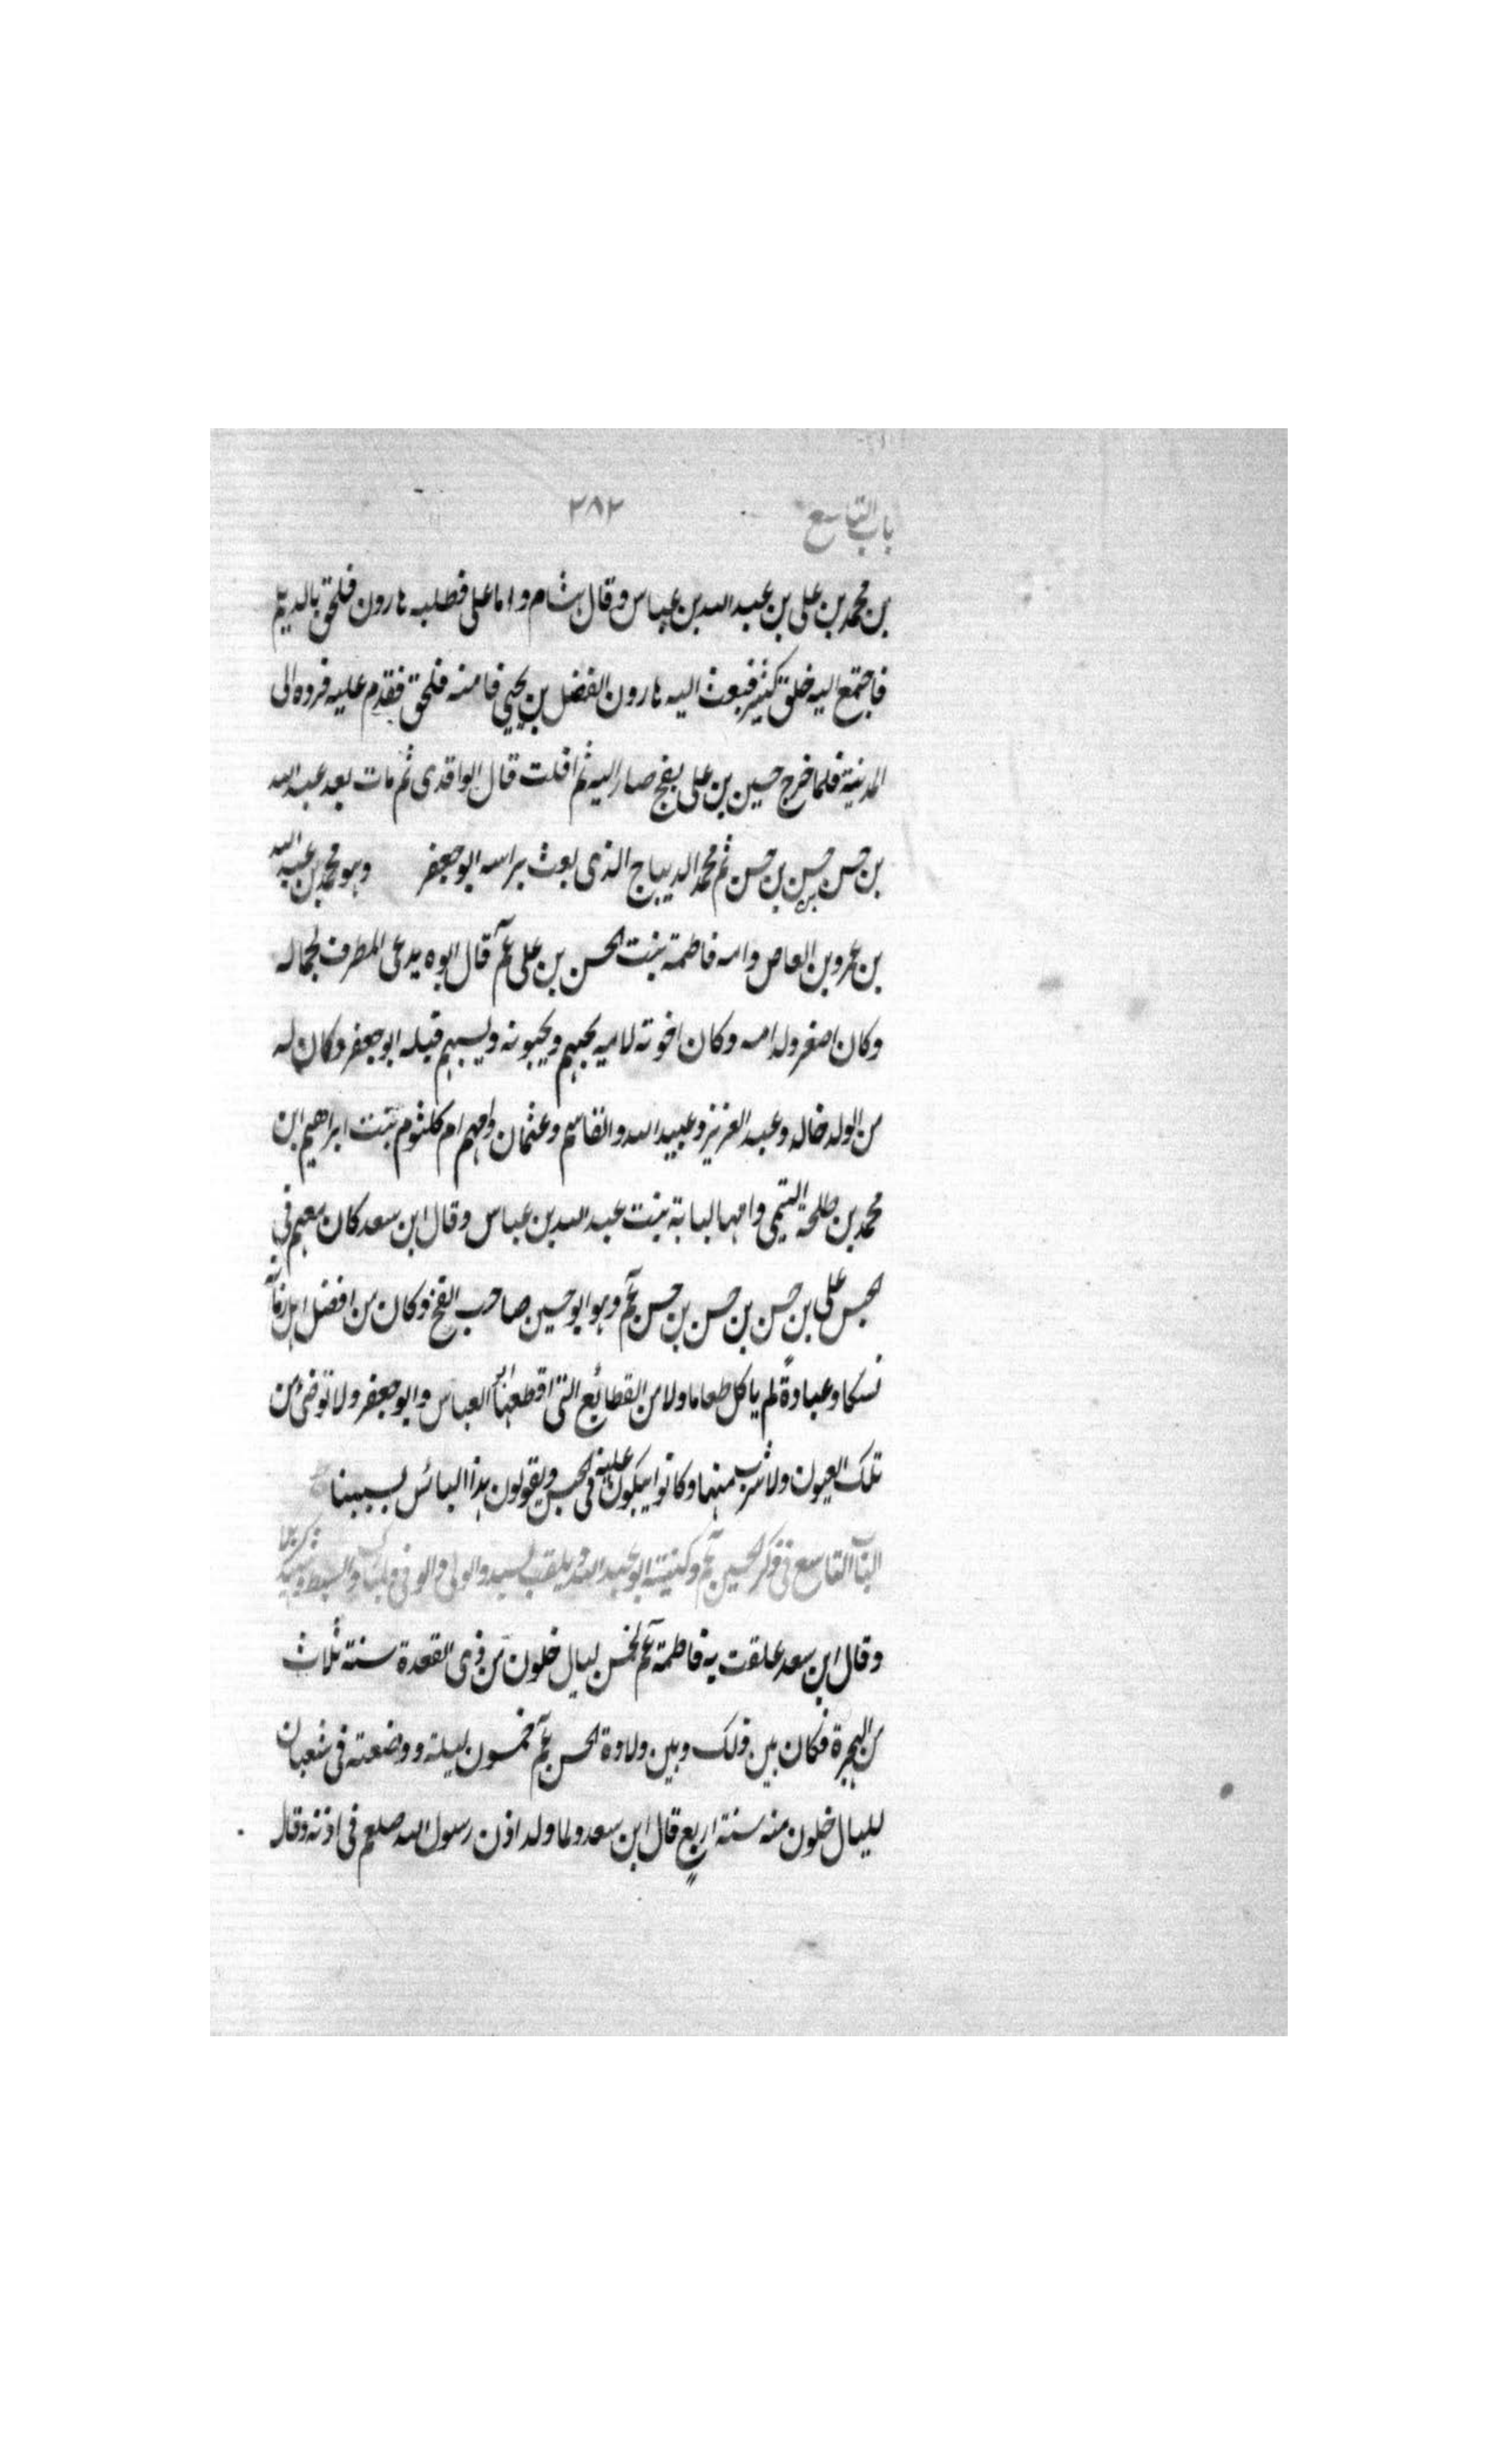 باب التاسع ٢٨٢
بن محمد بن على بن عبد الله بن عباس وقال هشام واما على فطلبه هارون فلحق بالديلم
فاجتمع اليه خلق كثير فبعث اليه هارون الفضل بن يحيى فامنه فلحق فقدم عليه فروه الى
المدينة فلما خرج حسين بن على بفخ صار اليه ثم افلت قال الواقدى ثم مات بعد عبد الله
بن حسن حسن بن حسن ثم محمد الديباج الذى بعث براسه ابو جعفر وهو محمد بن عبد الله
بن عمرو بن العاص وامه فاطمة بنت الحسن بن على عم قال ابوه يدعى المطرف لجماله
وكان اصغر ولد امه وكان اخوته لامه يحبهم ويحبونه قبله ابو جعفر وكان له
من الولد خالد وعبد العزيز وعبيد الله والقاسم وعثمان وامهم ام كلثوم بنت ابراهيم ابن
محمد بن طلحة التيمى وامها لبابة بنت عبد الله بن عباس وقال ابن سعد كان معهم فى
الحبس على بن حسن بن حسن بن حسن عم وهو ابو حسين صاحب الفخ وكان من افضل اهل زمانه
نسكا وعبادة لم ياكل طعاما ولا من القطائع التى اقطعها ابو العباس وابو جعفر ولا توضئ من
تلك العيون ولا شرب منها وكانوا يبكون عليه فى الحبس ويقولون هذا البائس بسببنا
الباب التاسع فى ذكر الحسين عم وكنيته ابو عبد الله ويلقب بالسيد والولى والوفى والسبط
وقال ابن سعد علقت به فاطمة عم لخمس ليال خلون من ذى القعدة سنة ثلاث
من الهجرة فكان بين ذلك وبين ولادة الحسن عم خمسون ليلة ووضعته فى شعبان
لليال خلون منه سنة اربع قال ابن سعد ولما ولد اذن رسول الله صلعم فى اذنه وقال